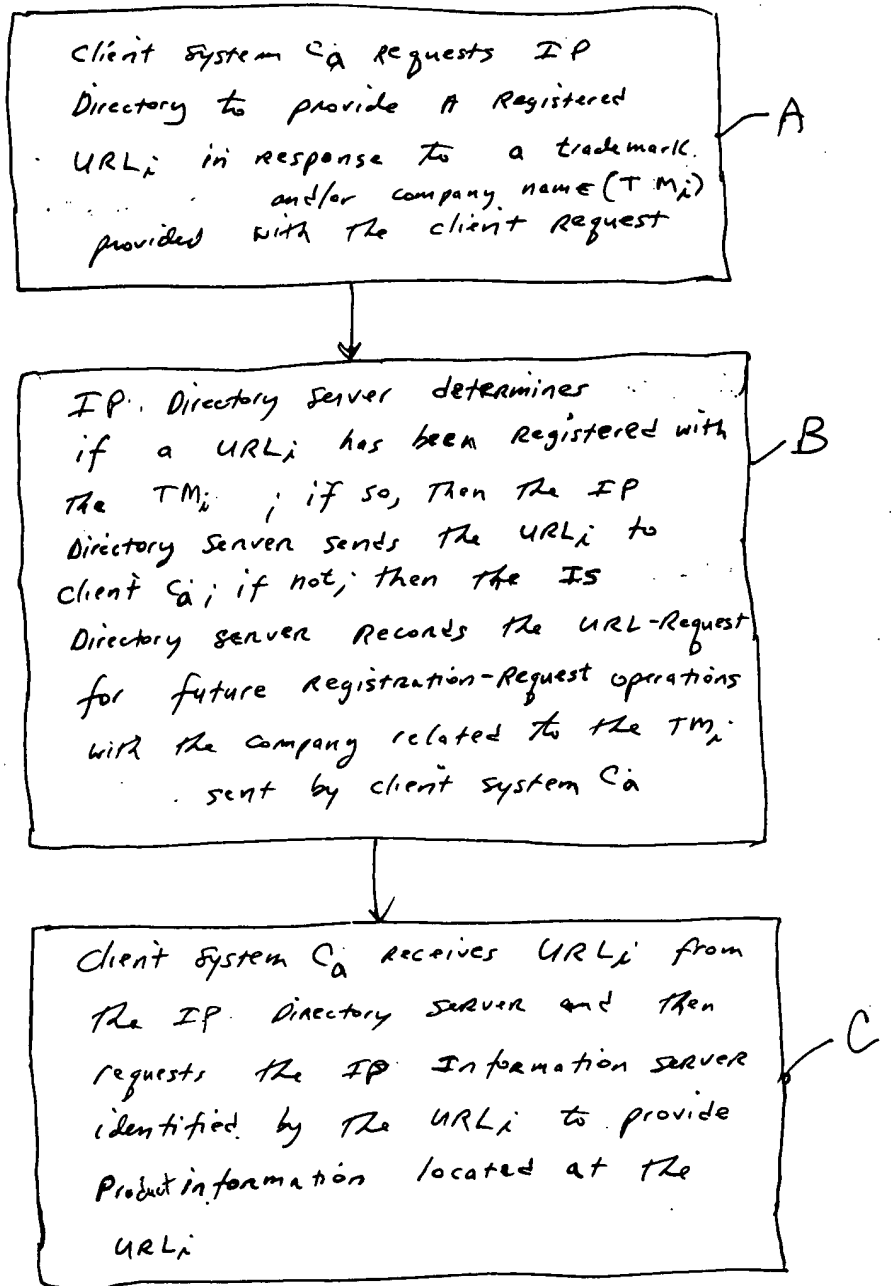 Client System Ca Requests IP
Directory to provide A Registered
URLi in response to a trademark
and/or company name (TMi)
provided with the client Request
A
IP. Directory Server determines
if a URLi has been Registered with
the TMi ; if so, Then the IP
Directory Server sends the URLi to
client Ca; if not, then the IS
Directory server Records the URL-Request
for future Registration-Request operations
with the company related to the TMi
sent by client system Ca
B
Client System Ca receives URLi from
the IP. Directory Server and then
requests the IP Information server
identified by the URLi to provide
Product information located at the
URLi
C